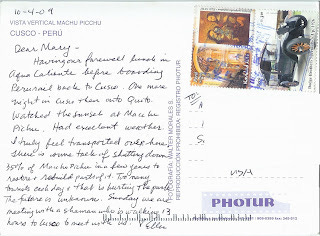 10-4-09
VISTA VERTICAL MACHU PICCHU
CUSCO - PERÚ
Dear Mary -
Having our farewell lunch in
Agua Caliente before boarding
Perurail back to Cusco. One more
night in Cusco then onto Quito.
Watched the sunset at Machu
Pichu. Had excellent weather.
I truly feel transported over here.
There is some talk of shutting down
35% of Machu Pichu in a few years to
restore & rebuild parts of it. Too many
tourists each day & that is hurting the park.
The future is unknown. Sunday we are
meeting with a shaman who is walking 13
hours to Cusco to meet with us.
Ellen
FOTOGRAFIA: WALTER MORALES S.
REPRODUCCION PROHIBIDA: REGISTRO PHOTUR
TO:
USA
PHOTUR